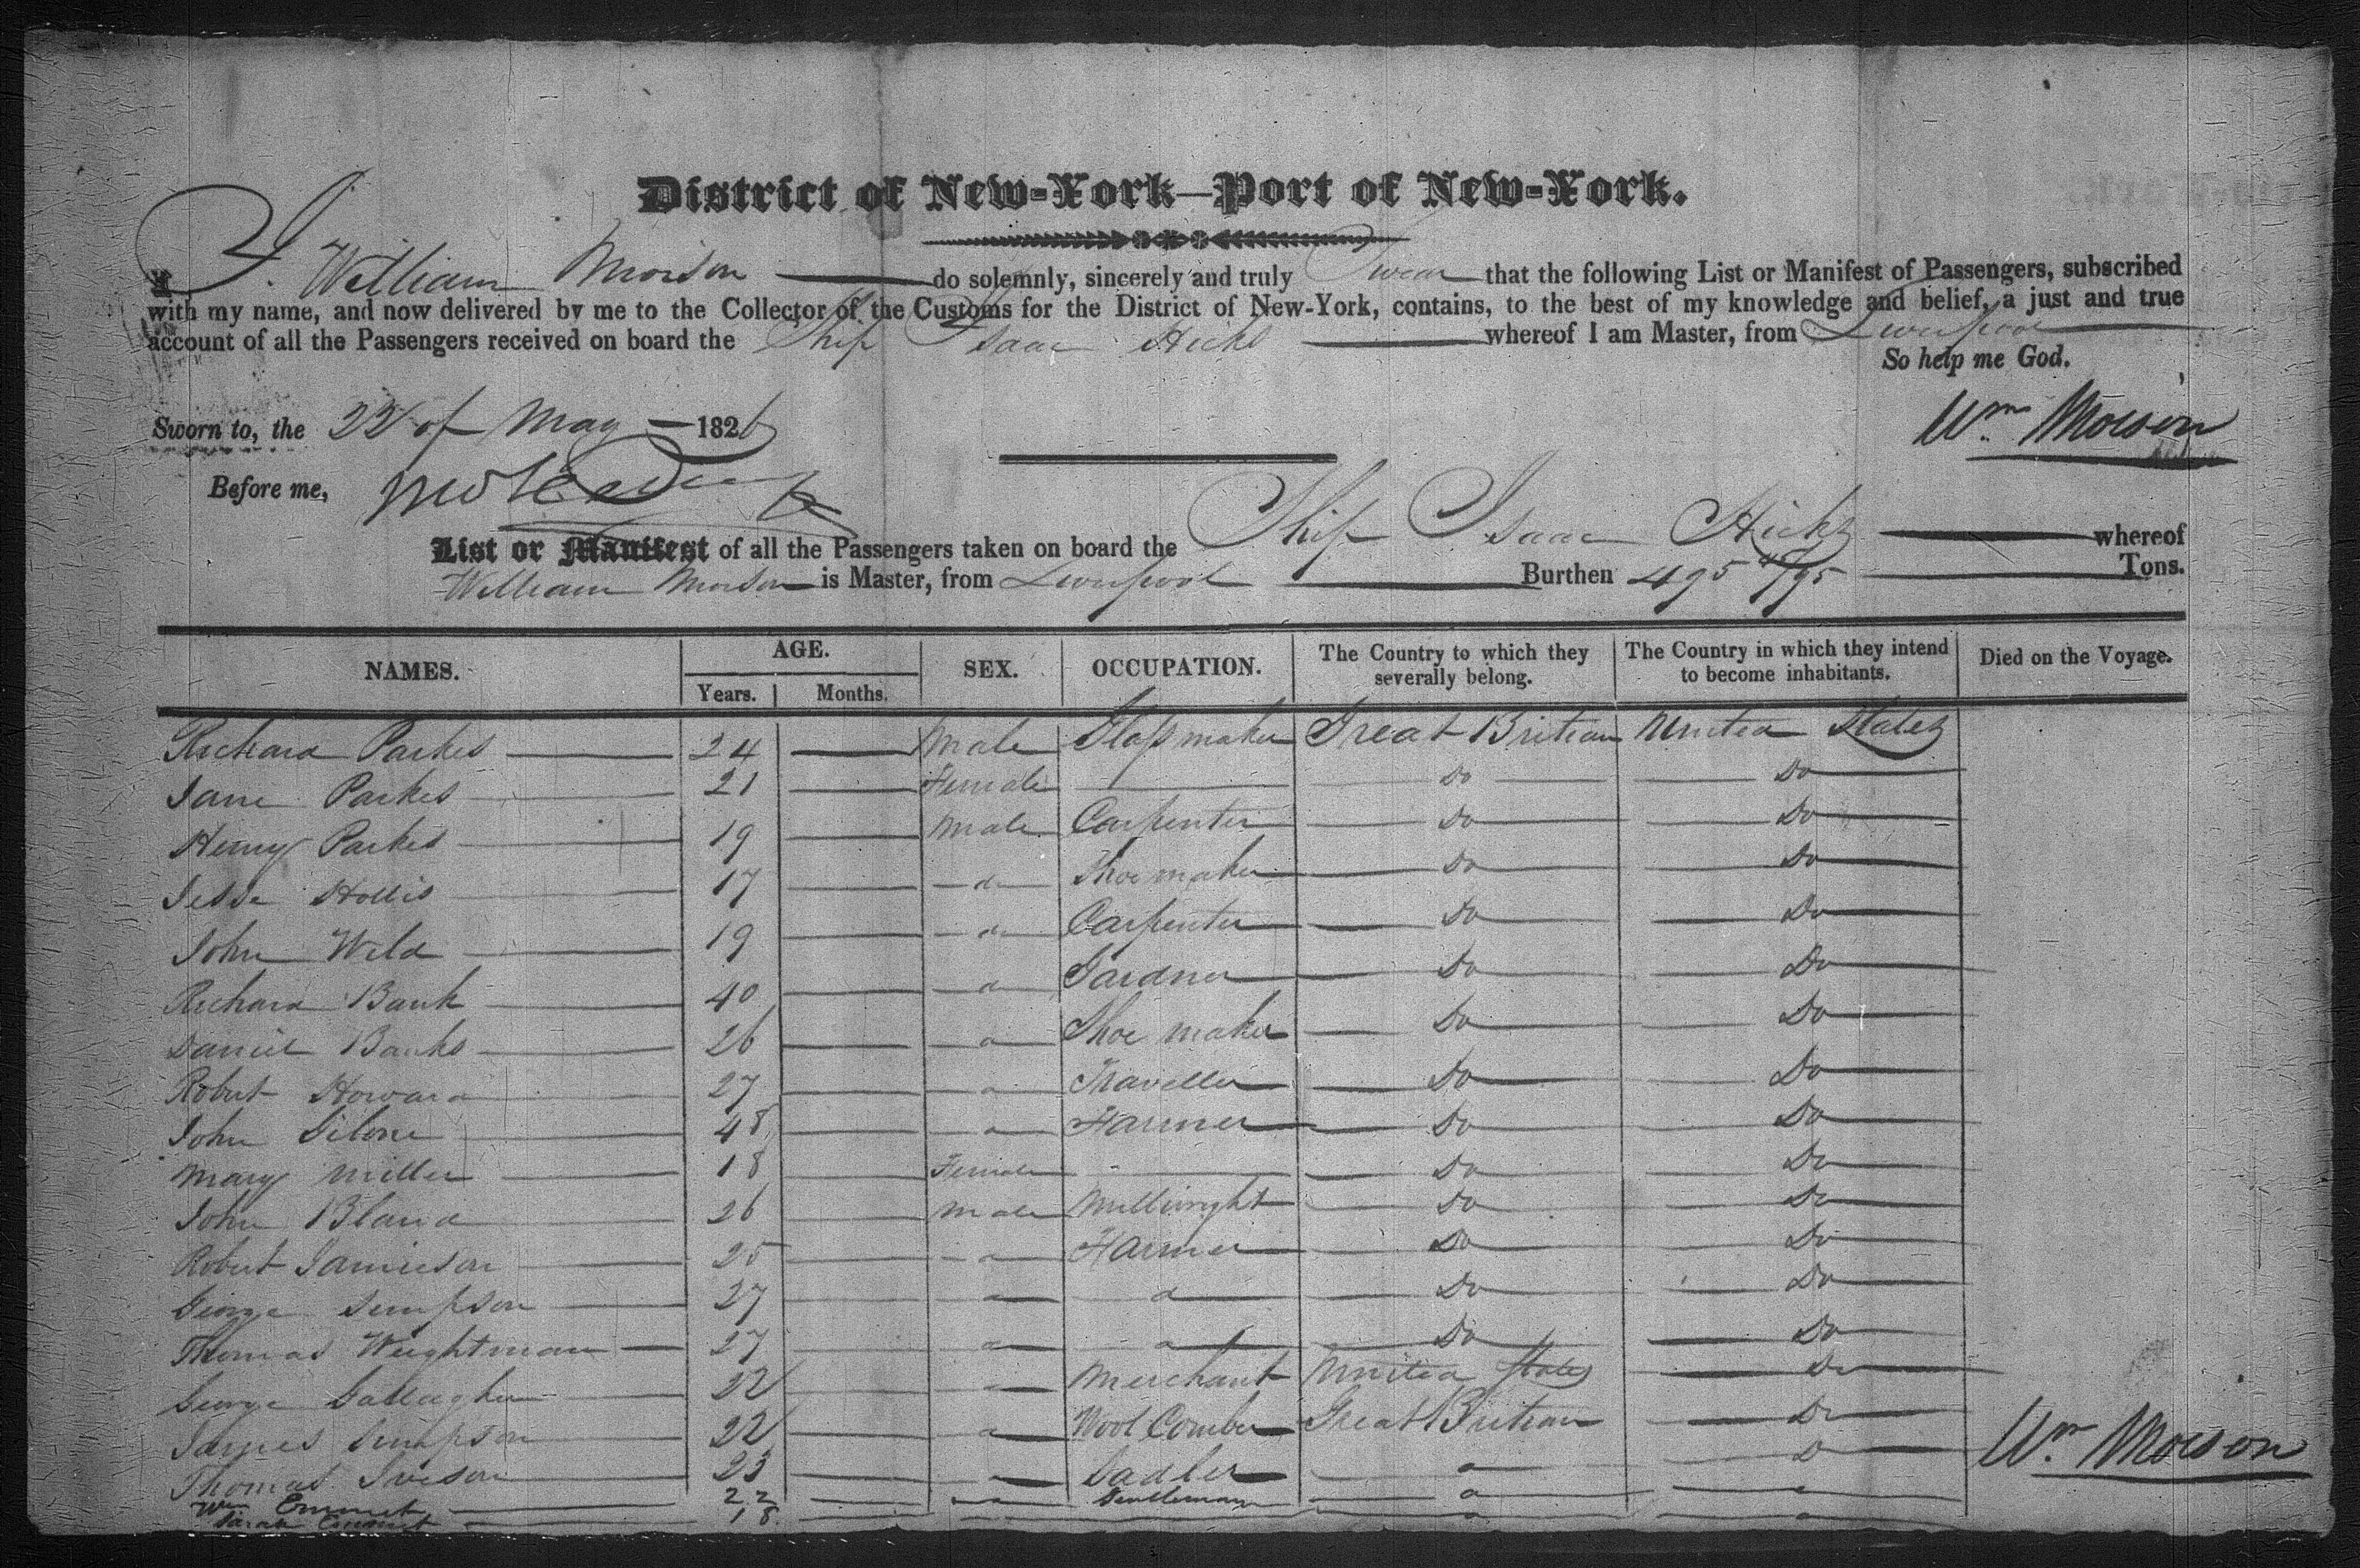 District of New-York—Port of New-York.
I, William Morson do solemnly, sincerely and truly Swear that the following List or Manifest of Passengers, subscribed
with my name, and now delivered by me to the Collector of the Customs for the District of New-York, contains, to the best of my knowledge and belief, a just and true
account of all the Passengers received on board the Ship Isaac Hicks whereof I am Master, from Liverpool
So help me God.
Sworn to, the 22 of May 1826
Wm Morson
Before me,
List or Manifest of all the Passengers taken on board the Ship Isaac Hicks whereof
William Morson is Master, from Liverpool Burthen 495 /95 Tons.
NAMES. AGE. SEX. OCCUPATION. The Country to which they severally belong. The Country in which they intend to become inhabitants. Died on the Voyage.
Years. Months.
Richard Parkes 24 Male Glass maker Great Britian United States
Jane Parkes 21 Female Do Do
Henry Parkes 19 Male Carpenter Do Do
Jesse Hollis 17 do Shoemaker Do Do
John Wild 19 do Carpenter Do Do
Richard Bank 40 do Gardner Do Do
Daniel Banks 26 do Shoe maker Do Do
Robert Howard 27 do Traveller Do Do
John 48 do Farmer Do Do
Mary Miller 18 Female Do Do
John Bland 26 Male Millwright Do Do
Robert Jamieson 25 do Farmer Do Do
George Simpson 27 do do Do Do
Thomas Weightman 27 do do Do Do
George Gallagher 22 do Merchant United States Do
James Simpson 22 do Wool Comber Great Britian Do
Thomas Iveson 23 do Sadler do Do
Wm Emmet 22 do Gentleman do do
Sarah Emmet 18 do do
Wm Morson